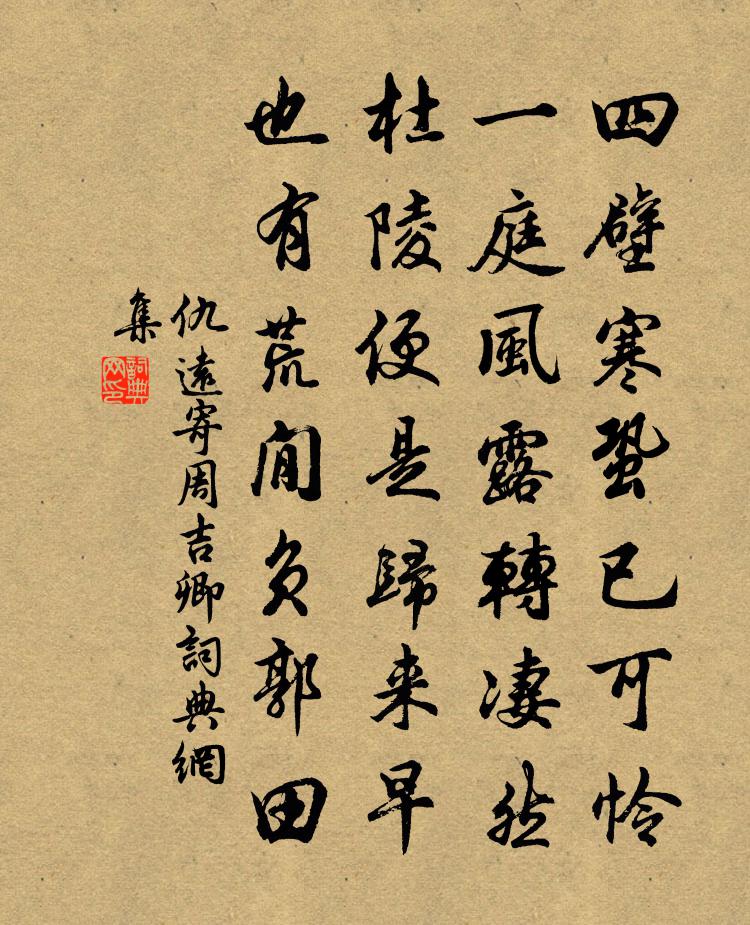 四壁寒蛩已可怜
一庭風露轉凄然
杜陵便是歸来早
也有荒閒负郭田
仇遠寄周吉卿詞典網
集
詞典
网印